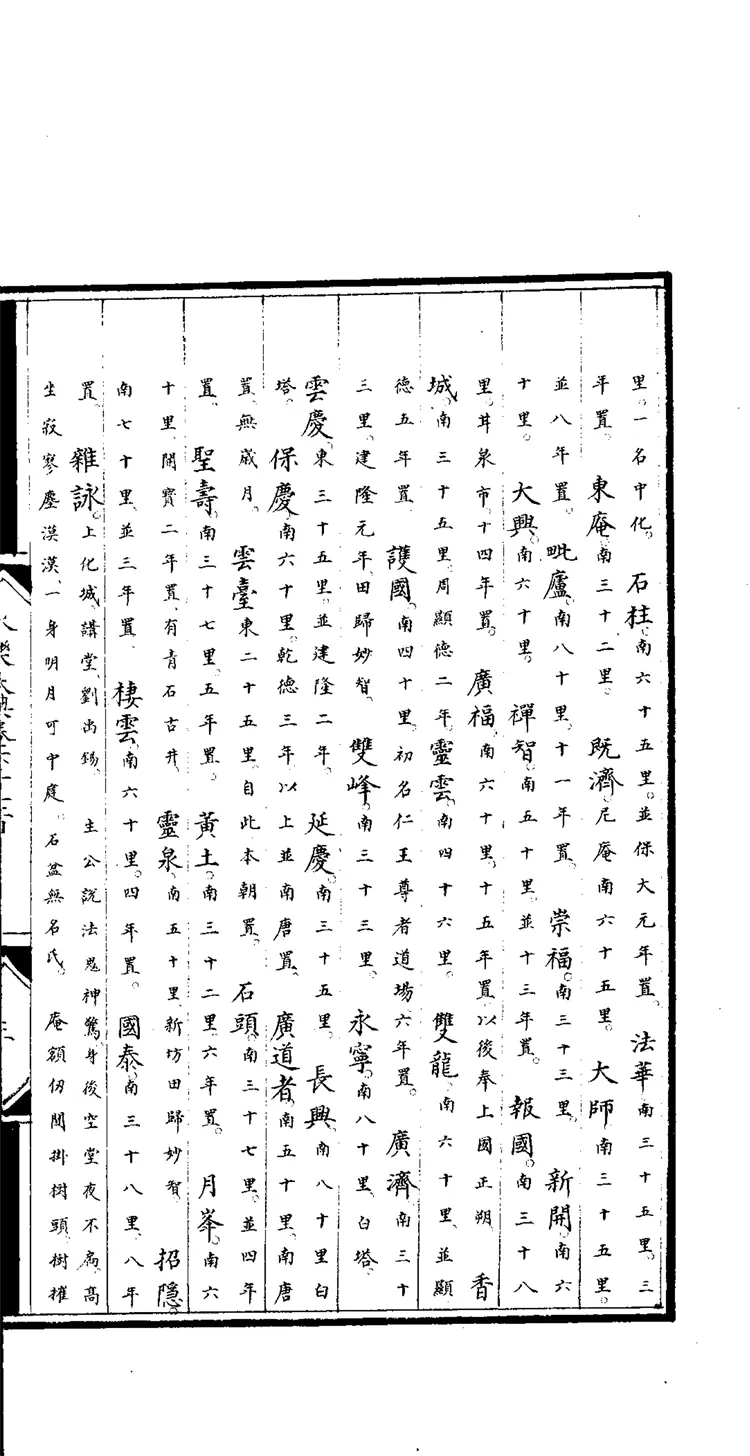 里。一名中化。石柱。南六十五里。並保大元年置。法華南三十五里。三
年置。東庵南三十二里。既濟尼庵南六十五里。大師南三十五里。
並八年置。毗盧南八十里。十一年置。崇福。南三十三里。新開。南六
十里。大興。南六十里。禪智。南五十里。並十三年置。報國。南三十八
里。茸泉市十四年置。廣福。南六十里。十五年置。以後奉上國正朔。香
城。南三十五里。周顯德二年。靈雲。南四十六里。雙龍。南六十里。並顯
德五年置。護國。南四十里。初名仁王尊者道場六年置。廣濟南三十
三里。建隆元年。田歸妙智。雙峰。南三十三里。永寧。南八十里。白塔。
雲慶。東三十五里。並建隆二年。延慶。南三十五里。長興南八十里白
塔。保慶。南六十里。乾德三年。以上並南唐置。廣道者。南五十里。南唐
置。無歲月。雲臺東二十五里。自此本朝置。石頭。南三十七里。並四年
置。聖壽。南三十七里。五年置。黃土。南三十二里。六年置。月峯。南六
十里。開寶二年置。有青石古井。靈泉。南五十里新坊田歸妙智。招隱。
南七十里。並三年置。棲雲。南六十里。四年置。國泰。南三十八里。八年
置。雜詠。上化城。講堂。劉禹錫。生公說法鬼神驚。身後空堂夜不扃。高
坐寂寥塵漠漠。一身明月可中庭。石盆無名氏。庵額仍聞掛樹頭。樹摧